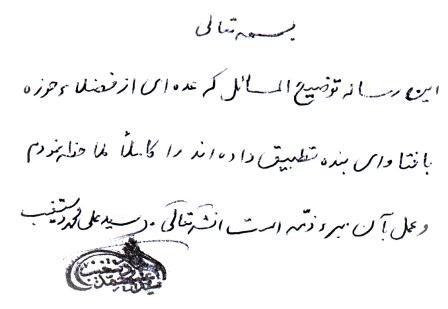 بسمه تعالی
این رساله توضیح المسائل که عده ای از فضلاء حوزه
با فتاوای بنده تطبیق داده اند را کاملاً ملاحظه نمودم
و عمل بآن مبرء ذمّه است انشاءالله تعالی. سید علی محمد دستغیب